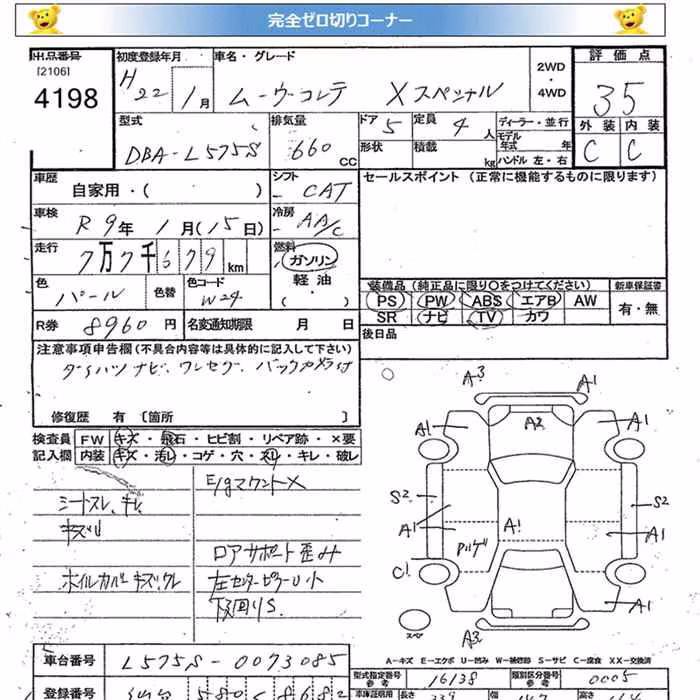 完全ゼロ切りコーナー
出品番号 初度登録年月 車名・グレード 2WD ・ 4WD 評価点
[2106]
4198 H22年 1月 ムーヴコンテ Xスペシャル 35
型式 排気量 ドア 5 定員 4人 ディーラー・並行 外装 内装
DBA-L575S 660 CC 形状 積載 kg モデル年式 年 ハンドル 左・右 C C
車歴 自家用・( ) シフト CAT セールスポイント (正常に機能するものに限ります)
車検 R9年 1月(15日) 冷房 AA/C
走行 7万7千679km 燃料 ガソリン
軽油
・( )
色 パール 色替 色コード W24 装備品 (純正品に限り○をつけてください) 新車保証書
PS PW ABS エアB AW 有・無
SR ナビ TV カワ
R券 8960円 名変通知期限 月 日 後日品
注意事項申告欄(不具合内容等は具体的に記入して下さい)
ダイハツナビ、ワンセグ、バックカメラ付
修復歴 有 〔箇所 〕
検査員 FW キズ・飛石・ヒビ割・リペア跡・×要
記入欄 内装 キズ・汚レ・コゲ・穴・スレ・キレ・破レ
E/gマウント×
シートスレ、キレ
キズ
ロアサポート歪み
ホイルカバーキズ、ワレ 左センターピラー凹小
下回りS
A3 A1
A1 A2 A1
S2 S2
A1 A1 A1
C1 A1
スペア A3
A-キズ E-エクボ U-凹み W-補修跡 S-サビ C-腐食 XX-交換済
車台番号 L575S-0073085 型式指定番号 参考 16138 類別区分番号 参考 0005
登録番号 580 8682 車庫証明用 参考 長さ 339 幅 147 高さ